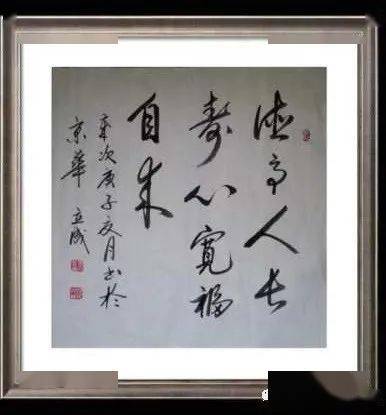 德高人长
寿心寬福
自来
岁次庚子夏月书於
京華 立成